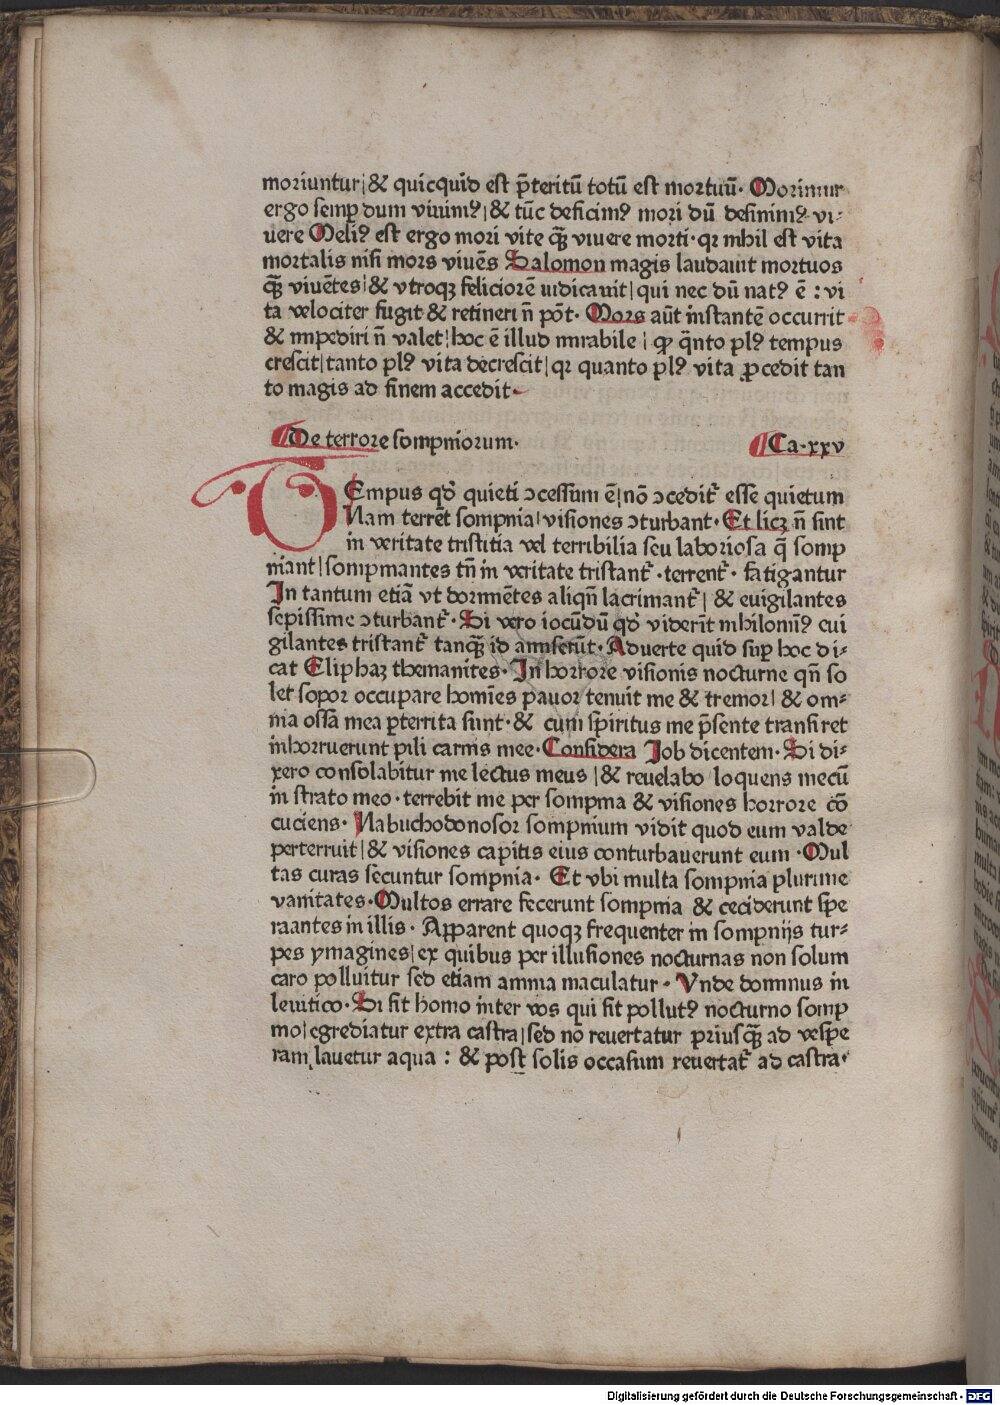 moriuntur|& quicquid est p̄teritū totū est mortuū· Morimur
ergo semp dum viuimꝰ|& tūc deficimꝰ mori dū definimꝰ vi⸗
uere Meliꝰ est ergo mori vite q̄ꝫ viuere morti·qr nihil est vita
mortalis nisi mors viuēs Salomon magis laudauit mortuos
q̄ꝫ viuētes|& vtroqꝫ feliciorē iudicauit|qui nec dū natꝰ ē : vi
ta velociter fugit & retineri n̄ pōt· Mors aūt instantē occurrit
& impediri n̄ valet|hoc ē illud mirabile | ꝙ q̄nto plꝰ tempus
crescit|tanto plꝰ vita decrescit|qr quanto plꝰ vita ꝓcedit tan
to magis ad finem accedit·
De terrore sompniorum·
Ca·xxv
TEmpus qd̓ quieti ↄcessum ē|nō ↄcedit᷑ esse quietum
Nam terrēt sompnia|visiones ↄturbant·Et licꝫ n̄ sint
in veritate tristitia vel terribilia seu laboriosa q̄ somp
niant|sompniantes tn̄ in veritate tristant᷑ ·terrent᷑· fatigantur
In tantum etiā vt dormiētes aliqn̄ lacrimant᷑| & euigilantes
sepissime ↄturbant᷑·Si vero iocūdū qd̓ viderīt nihilominꝰ eui
gilantes tristant᷑ tanq̄ꝫ id amiserūt·Aduerte quid suꝑ hoc di⸗
cat Eliphaz themanites·In horrore visionis nocturne qn̄ so
let sopor occupare homīes pauor tenuit me & tremor| & om⸗
nia ossa mea ꝑterrita sunt·& cum sp̄iritus me p̄sente transiret
inhorruerunt pili carnis mee·Considera Job dicentem·Si di⸗
xero consolabitur me lectus meus |& reuelabo loquens mecū
in strato meo·terrebit me per sompnia & visiones horrore cō
cuciens· Nabuchodonosor sompnium vidit quod eum valde
perterruit|& visiones capitis eius conturbauerunt eum ·Mul
tas curas secuntur sompnia· Et vbi multa sompnia plurime
vanitates·Multos errare fecerunt sompnia & ceciderunt spe
raantes in illis· Apparent quoqꝫ frequenter in sompnijs tur⸗
pes ymagines|ex quibus per illusiones nocturnas non solum
caro polluitur sed etiam anima maculatur· Vnde dominus in
leuitico·Si sit homo inter vos qui sit pollutꝰ nocturno somp
nio|egrediatur extra castra|sed nō reuertatur priusq̄ꝫ ad vespe
ram lauetur aqua : & post solis occasum reuertat᷑ ad castra·
Digitalisierung gefördert durch die Deutsche Forschungsgemeinschaft · DFG